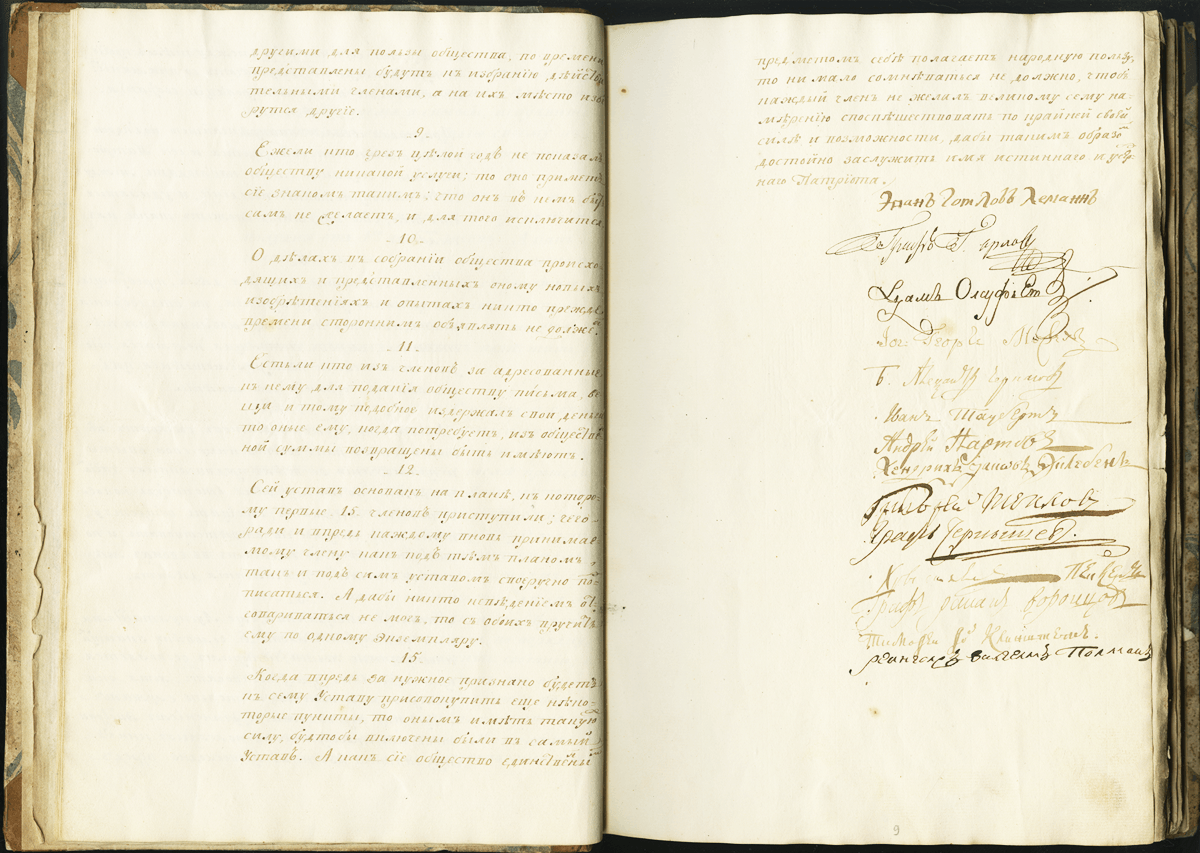 другими для пользы общества, по времени
представлены будутъ къ избранію дѣйстви
тельными членами, а на ихъ мѣсто избе
рутся другіе.
-9-
Ежели кто чрезъ цѣлой годъ не показалъ
обществу никакой услуги; то оно приметъ
сіе знакомъ такимъ; что онъ въ немъ быт
самъ не желаетъ, и для того исключится
-10-
О дѣлахъ въ собраніи общества происхо-
дящихъ и представленныхъ оному новыхъ
изобрѣтеніяхъ и опытахъ никто прежде
времени стороннимъ объявлять не долже.
-11-
Естьли кто изъ членовъ за адресованные
къ нему для поданія обществу письма, ве
щи и тому подобное издержалъ свои деньги
то оные ему, когда потребуетъ, изъ обществе
ной суммы возвращены быть имѣютъ.
-12-
Сей уставъ основанъ на планѣ, къ которо-
му первые 15. членовъ приступили; чего
ради и впредь каждому вновь принимае
мому члену какъ подъ тѣмъ планомъ,
такъ и подъ симъ уставомъ своеручно по
писаться. А дабы никто невѣденіемъ от
говариваться не могъ, то съ обоихъ вручить
ему по одному экземпляру.
-13-
Когда впредь за нужное признано будетъ
къ сему Уставу присовокупить еще нѣко-
торые пункты, то онымъ имѣть такую
силу, будтобы включены были въ самый
Уставъ. А какъ сіе общество единственны
предметомъ себѣ полагаетъ народную пользу,
то ни мало сомнѣваться не должно, чтобъ
каждый членъ не желалъ великому сему на-
мѣренію споспѣшествовать по крайней своей
силѣ и возможности, дабы такимъ образо
достойно заслужить имя истиннаго и усер
наго Патріота.
Іоганъ Готлобъ Леманнъ
Графъ Г. Орловъ
Адамъ Олсуфьевъ
Іог. Георгъ Модель
Б. Александръ Черкасовъ
Иванъ Таубертъ
Андрей Нартовъ
Григорей Тепловъ
Графъ Чернышевъ.
Графъ Романъ Воронцовъ
Тимофей фо Клингштетъ.